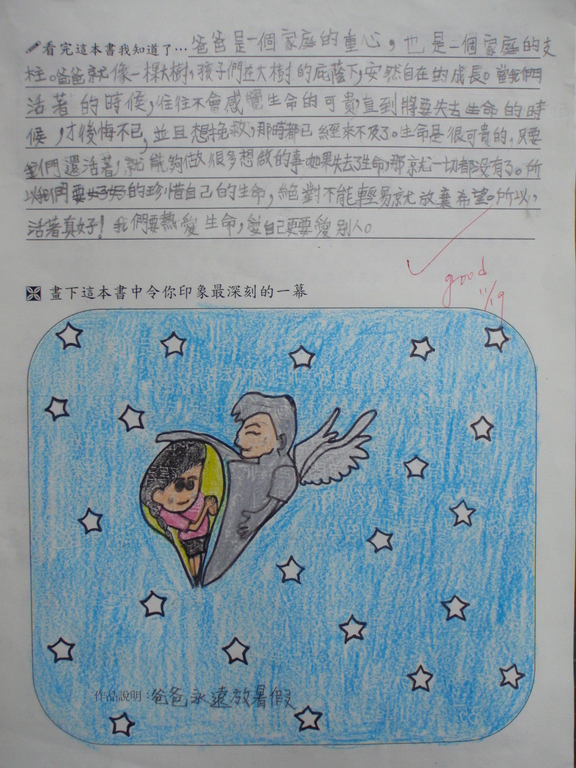 看完這本書我知道了…爸爸是一個家庭的重心，也是一個家庭的支
柱。爸爸就像一棵大樹，孩子們在大樹的庇蔭下，安然自在的成長。當我們
活著的時候，往往不會感覺生命的可貴，直到將要失去生命的時
候，才後悔不已，並且想挽救，那時都已經來不及了。生命是很可貴的，只要
我們還活著，就能夠做很多想做的事，如果失去了生命，那就一切都沒有了。所
以我們要好好的珍惜自己的生命，絕對不能輕易就放棄希望。所以，
活著真好！我們要熱愛生命，愛自己更要愛別人。
good
11/19
畫下這本書中令你印象最深刻的一幕
作品說明：爸爸永遠放暑假